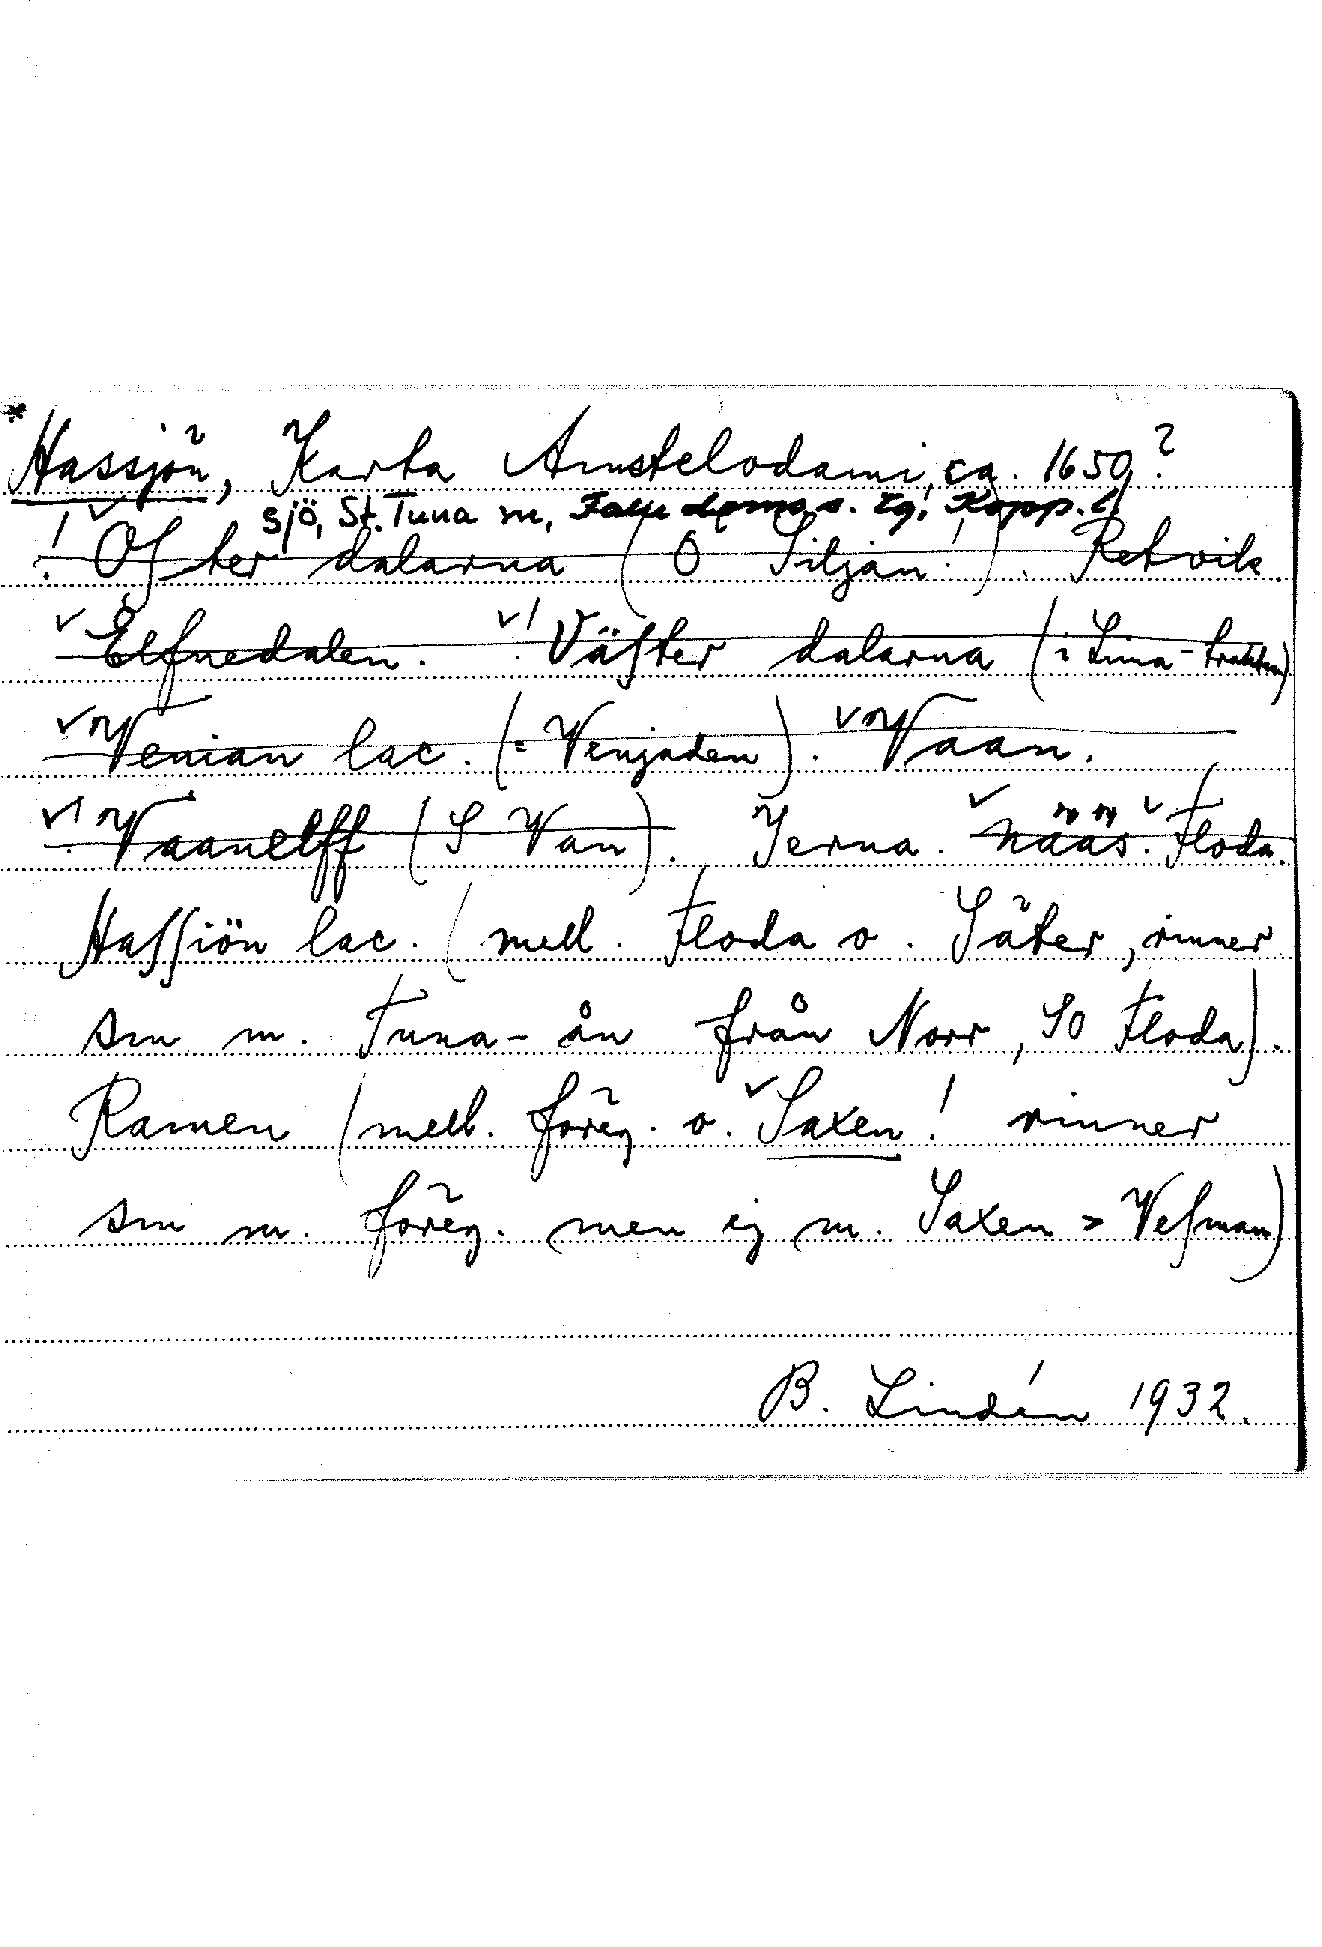 Hassjön, Karta Amstelodami, ca. 1650?
sjö, St. Tuna sn, Falu domsagas tg, Kopp. l.
! Öster dalarna (Ö Siljan!). Retvik.
Elfnedalen. ! Väster dalarna (i Lima-trakten)
Venian lac. (= Venjaden). Vaan.
! Vaanelff (S Van). Jerna. Nääs. Floda.
Hassiön lac. (mell. Floda o. Säter, rinner
sm m. Tuna-ån från Norr, SO Floda).
Ramen (mell. föreg. o. Saxen! rinner
sm m. föreg. men ej m. Saxen > Vesman)
B. Lindén 1932.